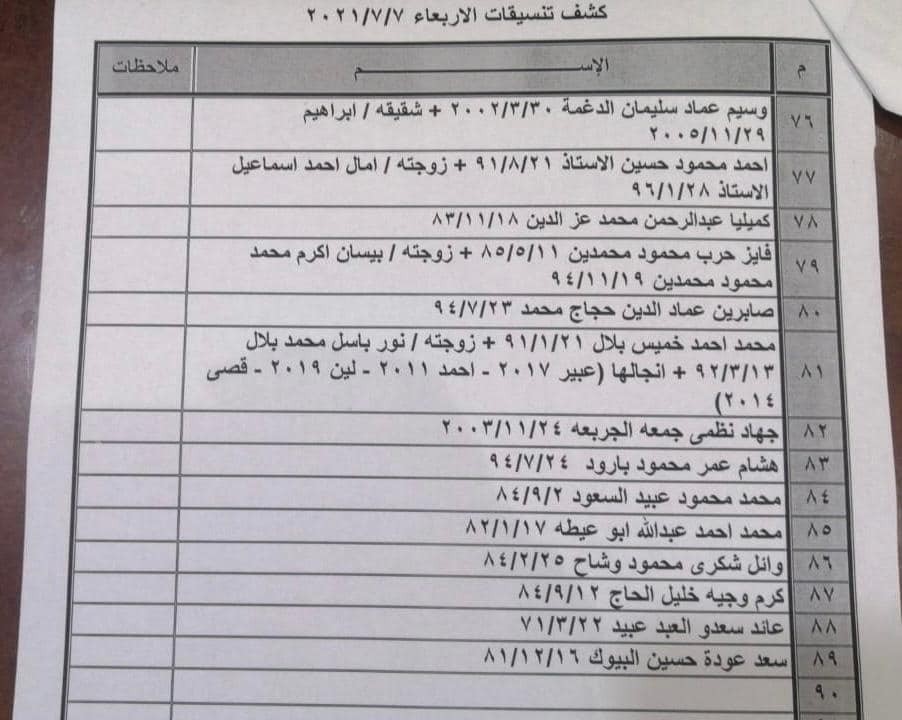 كشف تنسيقات الاربعاء ٢٠٢١/٧/٧
م الإســـــم ملاحظات
٧٦ وسيم عماد سليمان الدغمة ٢٠٠٢/٣/٣٠ + شقيقه / ابراهيم
٢٠٠٥/١١/٢٩
٧٧ احمد محمود حسين الاستاذ ٩١/٨/٢١ + زوجته / امال احمد اسماعيل
الاستاذ ٩٦/١/٢٨
٧٨ كميليا عبدالرحمن محمد عز الدين ٨٣/١١/١٨
٧٩ فايز حرب محمود محمدين ٨٥/٥/١١ + زوجته / بيسان اكرم محمد
محمود محمدين ٩٤/١١/١٩
٨٠ صابرين عماد الدين حجاج محمد ٩٤/٧/٢٣
٨١ محمد احمد خميس بلال ٩١/١/٢١ + زوجته / نور باسل محمد بلال
٩٢/٣/١٣ + انجالها (عبير ٢٠١٧ - احمد ٢٠١١ - لين ٢٠١٩ - قصى
٢٠١٤)
٨٢ جهاد نظمى جمعه الجربعه ٢٠٠٣/١١/٢٤
٨٣ هشام عمر محمود بارود ٩٤/٧/٢٤
٨٤ محمد محمود عبيد السعود ٨٤/٩/٢
٨٥ محمد احمد عبدالله ابو عيطه ٨٢/١/١٧
٨٦ وائل شكرى محمود وشاح ٨٤/٢/٢٥
٨٧ كرم وجيه خليل الحاج ٨٤/٩/١٢
٨٨ عائد سعدو العبد عبيد ٧١/٣/٢٢
٨٩ سعد عودة حسين البيوك ٨١/١٢/١٦
٩٠